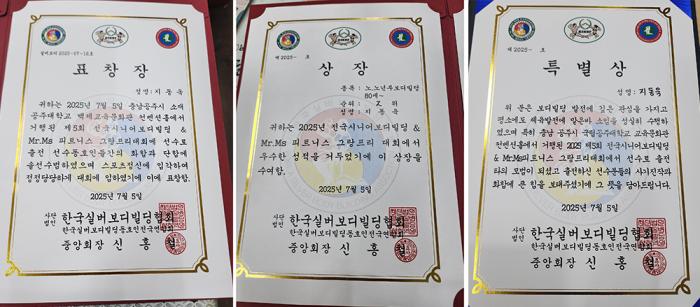 실버보디 2025-07-18호
표창장
성명: 지동욱
귀하는 2025년 7월 5일 충남공주시 소재
공주대학교 백제교육문화관 컨벤션홀에서
거행된 제5회 전국시니어보디빌딩 &
Mr.Ms 피트니스 그랑프리대회에 선수로
출전 선수동호인들간의 화합과 단합에
솔선수범하였으며 스포츠정신에 입각하여
정정당당하게 대회에 임하였기에 이에 표창함.
2025년 7월 5일
사단법인 한국실버보디빌딩협회
한국실버보디빌딩동호인전국연합회
중앙회장 신 홍 철
제 2025- 호
상장
종목: 노.노년부보디빌딩
80세~
순위: 2 위
성명: 지동욱
귀하는 2025년 전국시니어보디빌딩 &
Mr.Ms 피트니스 그랑프리 대회에서
우수한 성적을 거두었기에 이 상장을
수여함.
2025년 7월 5일
사단법인 한국실버보디빌딩협회
한국실버보디빌딩동호인전국연합회
중앙회장 신 홍 철
제 2025- 호
특별상
성명: 지동욱
위 분은 보디빌딩 발전에 깊은 관심을 가지고
평소에도 체육발전에 맡은바 소임을 성실히 수행하
였으며 특히 충남 공주시 국립공주대학교 교육문화관
컨벤션홀에서 거행된 2025 제5회 전국시니어보디빌딩
&Mr.Ms피트니스 그랑프리대회에서 선수로 출전
타의 모범이 되셨고 출전하신 선수분들의 사기진작과
화합에 큰 힘을 보태주셨기에 그 뜻을 담아드립니다.
2025년 7월 5일
사단법인 한국실버보디빌딩협회
한국실버보디빌딩동호인전국연합회
중앙회장 신 홍 철